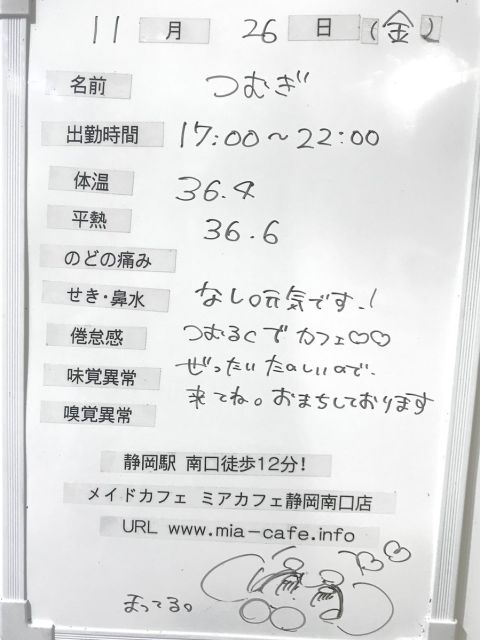 11月26日(金)
名前 つむぎ
出勤時間 17:00~22:00
体温 36.4
平熱 36.6
のどの痛み
せき・鼻水 なし。元気です!
倦怠感 つむるcでカフェ♡♡
味覚異常 ぜったいたのしいので、
嗅覚異常 来てね。おまちしております
静岡駅 南口徒歩12分!
メイドカフェ ミアカフェ静岡南口店
URL www.mia-cafe.info
まってる。